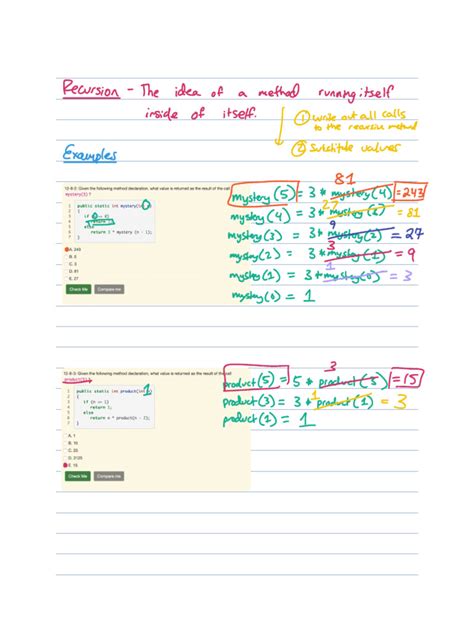 Recursion - The idea of a method running itself
inside of itself.
① write out all calls
to the recursive method
② Substitute values
Examples
12-8-2: Given the following method declaration, what value is returned as the result of the call
mystery(5)?
1 public static int mystery(int
2 {
3 if (n == 0)
4 return 1;
5 else
6 return 3 * mystery (n - 1);
7 }
A. 243
B. 0
C. 3
D. 81
E. 27
Check Me Compare me
81
mystery(5) = 3 * mystery(4) = 243
27
mystery(4) = 3 * mystery(3) = 81
9
mystery(3) = 3 * mystery(2) = 27
3
mystery(2) = 3 * mystery(1) = 9
1
mystery(1) = 3 * mystery(0) = 3
mystery(0) = 1
12-8-3: Given the following method declaration, what value is returned as the result of the call
product(5)?
1 public static int product(int
2 {
3 if (n == 1)
4 return 1;
5 else
6 return n * product(n - 2);
7 }
A. 1
B. 10
C. 25
D. 3125
E. 15
Check Me Compare me
3
product(5) = 5 * product(3) = 15
1
product(3) = 3 * product(1) = 3
product(1) = 1